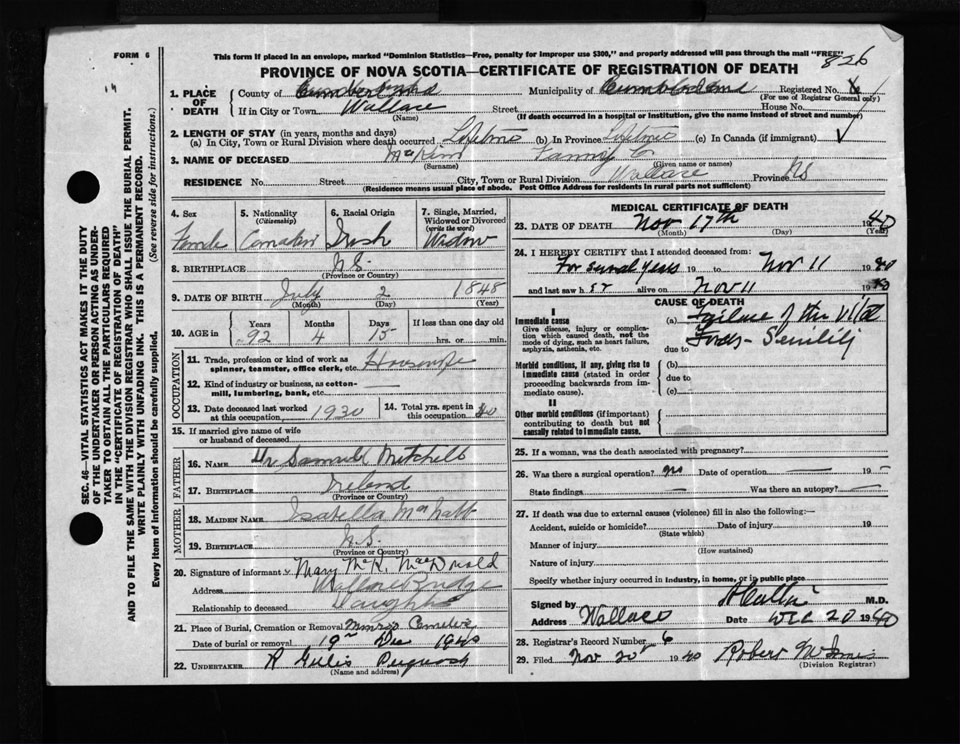 FORM 6
This form if placed in an envelope, marked "Dominion Statistics—Free, penalty for improper use $300," and properly addressed will pass through the mail "FREE"
826
PROVINCE OF NOVA SCOTIA—CERTIFICATE OF REGISTRATION OF DEATH
1. PLACE OF DEATH
County of Cumberland Municipality of Cumberland Registered No.
(For use of Registrar General only)
If in City or Town Wallace Street House No.
(Name) (If death occurred in a hospital or institution, give the name instead of street and number)
2. LENGTH OF STAY (in years, months and days)
(a) In City, Town or Rural Division where death occurred Lifetime (b) In Province Lifetime (c) In Canada (if immigrant)
3. NAME OF DECEASED McKim Fanny C.
(Surname) (Given name or names)
RESIDENCE No. Street City, Town or Rural Division Wallace Province NS
(Residence means usual place of abode. Post Office Address for residents in rural parts not sufficient)
SEC. 46—VITAL STATISTICS ACT MAKES IT THE DUTY
OF THE UNDERTAKER OR PERSON ACTING AS UNDER-
TAKER TO OBTAIN ALL THE PARTICULARS REQUIRED
IN THE "CERTIFICATE OF REGISTRATION OF DEATH"
AND TO FILE THE SAME WITH THE DIVISION REGISTRAR WHO SHALL ISSUE THE BURIAL PERMIT.
WRITE PLAINLY WITH UNFADING INK. THIS IS A PERMANENT RECORD.
Every item of information should be carefully supplied. (See reverse side for instructions.)
4. Sex
Female
5. Nationality
(Citizenship)
Canadian
6. Racial Origin
Irish
7. Single, Married,
Widowed or Divorced
(write the word)
Widow
8. BIRTHPLACE N.S.
(Province or Country)
9. DATE OF BIRTH July 2 1848
(Month) (Day) (Year)
10. AGE in Years Months Days If less than one day old
92 4 15 hrs. or min.
OCCUPATION
11. Trade, profession or kind of work as
spinner, teamster, office clerk, etc. Housewife
12. Kind of industry or business, as cotton-
mill, lumbering, bank, etc.
13. Date deceased last worked
at this occupation 1930
14. Total yrs. spent in
this occupation
15. If married give name of wife
or husband of deceased
FATHER
16. NAME Dr Samuel Mitchell
17. BIRTHPLACE Ireland
(Province or Country)
MOTHER
18. MAIDEN NAME Isabella
19. BIRTHPLACE N.S.
(Province or Country)
20. Signature of informant Mary McK. MacDonald
Address Wallace Bridge
Relationship to deceased Daughter
21. Place of Burial, Cremation or Removal Cemetery
Date of burial or removal 19 1940
22. UNDERTAKER Pugwash
(Name and address)
MEDICAL CERTIFICATE OF DEATH
23. DATE OF DEATH Nov 17th 1940
(Month) (Day) (Year)
24. I HEREBY CERTIFY that I attended deceased from:
For several years 19 to Nov 11 1940
and last saw her alive on Nov 11 19
CAUSE OF DEATH
I
Immediate cause
Give disease, injury or complica-
tion which caused death, not the
mode of dying, such as heart failure,
asphyxia, asthenia, etc.
(a) Failure of the vital
forces - Senility
due to
Morbid conditions, if any, giving rise to
immediate cause (stated in order
proceeding backwards from im-
mediate cause).
(b)
due to
(c)
II
Other morbid conditions (if important)
contributing to death but not
causally related to immediate cause.
25. If a woman, was the death associated with pregnancy?
26. Was there a surgical operation? no Date of operation 19
State findings Was there an autopsy?
27. If death was due to external causes (violence) fill in also the following:—
Accident, suicide or homicide? Date of injury 19
(State which)
Manner of injury
(How sustained)
Nature of injury
Specify whether injury occurred in industry, in home, or in public place
Signed by M.D.
Address Wallace Date Dec 20 1940
28. Registrar's Record Number 6
29. Filed Nov 20 1940 Robert
(Division Registrar)